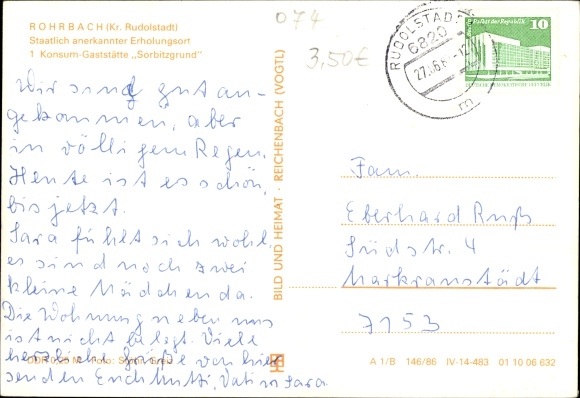 ROHRBACH (Kr. Rudolstadt)
Staatlich anerkannter Erholungsort
1 Konsum-Gaststätte „Sorbitzgrund"
Wir sind gut an-
gekommen, aber
in völligem Regen.
Heute ist es schön,
bis jetzt.
Sara fühlt sich wohl,
es sind noch zwei
kleine Mädchen da.
Die Wohnung neben uns
ist nicht belegt. Viele
herzliche Grüße von hier
senden Euch Mutti, Vati u. Sara
074
3,50€
BILD UND HEIMAT · REICHENBACH (VOGTL)
RUDOLSTADT
6820
27.
Palast der Republik 10
Fam.
Eberhard Ruß
Südstr. 4
Markranstädt
7153
Foto:
A 1/B 146/86 IV-14-483 01 10 06 632